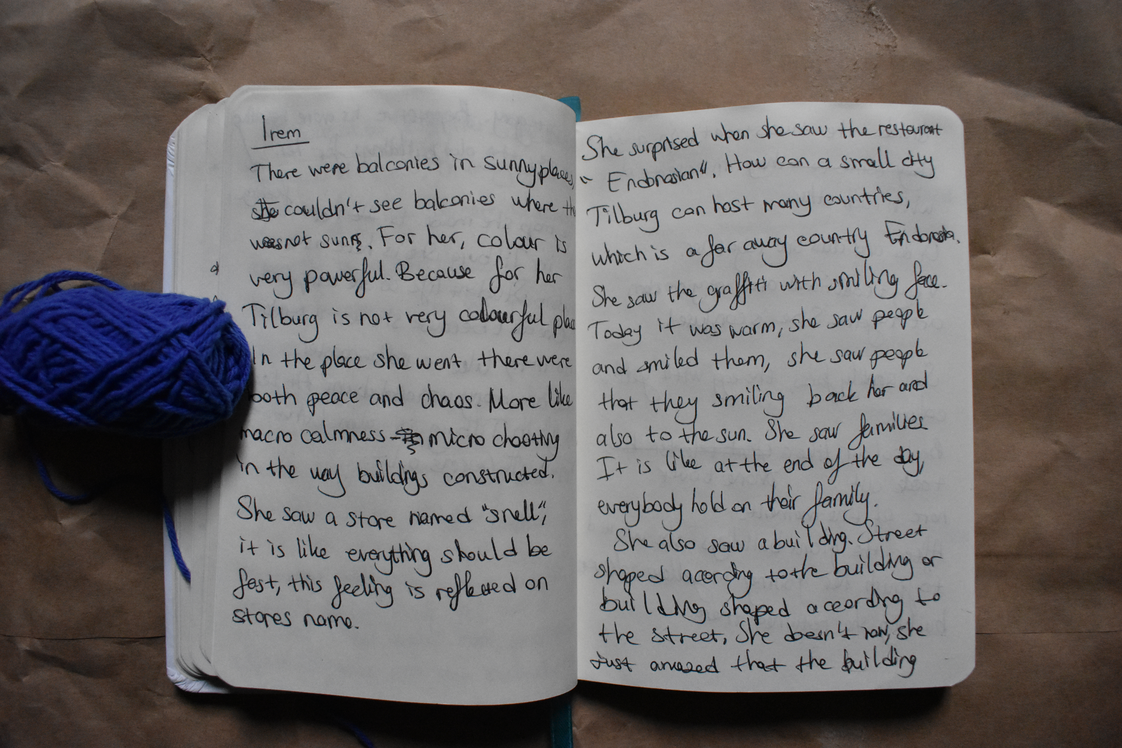 Irem
There were balconies in sunny places,
she couldn't see balconies where th
was not sunny. For her, colour is
very powerful. Because for her
Tilburg is not very colourful plac
In the place she went there were
both peace and chaos. More like
macro calmness micro chaoting
in the way buildings constructed.
She saw a store named "snell",
it is like everything should be
fast, this feeling is reflected on
stores name.
She surprised when she saw the restaurant
"Endonasian". How can a small city
Tilburg can host many countries,
which is a far away country Endonasia.
She saw the graffiti with smiling face.
Today it was warm, she saw people
and smiled them, she saw people
that they smiling back her and
also to the sun. She saw families
It is like at the end of the day,
everybody hold on their family.
She also saw a building. Street
shaped acording to the building or
building shaped according to
the street, She doesn't now, she
just amazed that the building